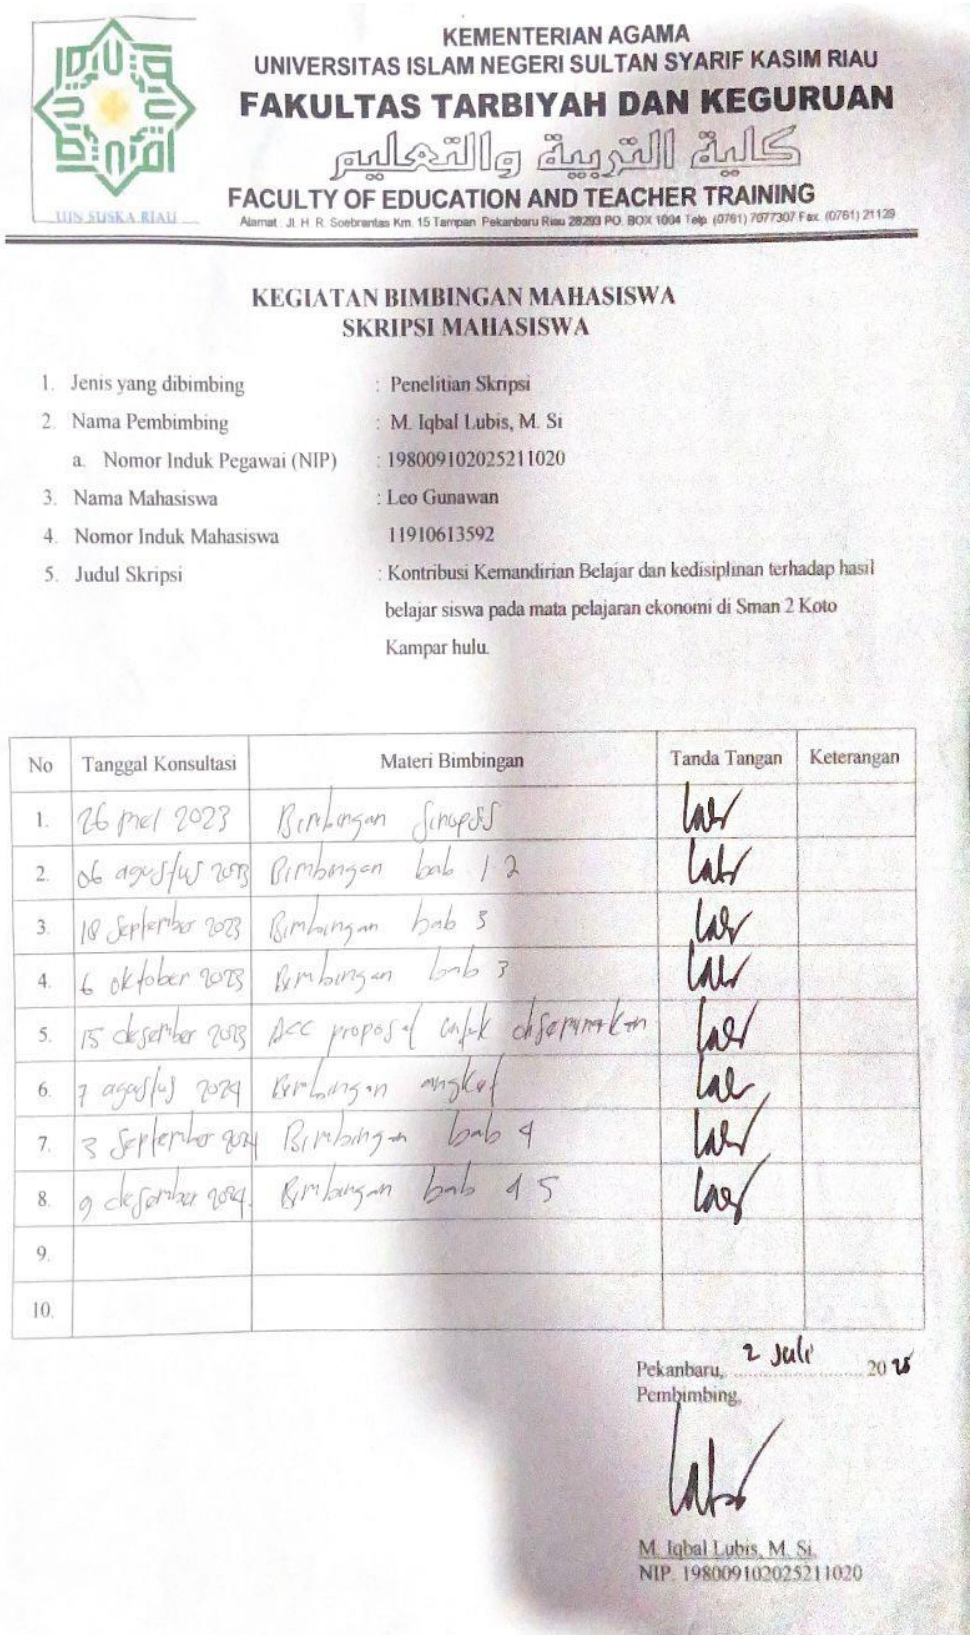 KEMENTERIAN AGAMA
UNIVERSITAS ISLAM NEGERI SULTAN SYARIF KASIM RIAU
FAKULTAS TARBIYAH DAN KEGURUAN
كلية التربية والتعليم
FACULTY OF EDUCATION AND TEACHER TRAINING
UIN SUSKA RIAU
Alamat : Jl. H. R. Soebrantas Km. 15 Tampan Pekanbaru Riau 28293 PO. BOX 1004 Telp. (0761) 7077307 Fax. (0761) 21129
KEGIATAN BIMBINGAN MAHASISWA
SKRIPSI MAHASISWA
1. Jenis yang dibimbing : Penelitian Skripsi
2. Nama Pembimbing : M. Iqbal Lubis, M. Si
a. Nomor Induk Pegawai (NIP) : 198009102025211020
3. Nama Mahasiswa : Leo Gunawan
4. Nomor Induk Mahasiswa 11910613592
5. Judul Skripsi : Kontribusi Kemandirian Belajar dan kedisiplinan terhadap hasil
belajar siswa pada mata pelajaran ekonomi di Sman 2 Koto
Kampar hulu.
No Tanggal Konsultasi Materi Bimbingan Tanda Tangan Keterangan
1. 26 mei 2023 Bimbingan Sinopsis
2. 06 agustus 2023 Bimbingan bab 1 2
3. 18 September 2023 Bimbingan bab 3
4. 6 oktober 2023 Bimbingan bab 3
5. 15 desember 2023 ACC proposal untuk diseminarkan
6. 7 agustus 2024 Bimbingan angket
7. 3 September 2024 Bimbingan bab 4
8. 9 desember 2024. Bimbingan bab 4 5
9.
10.
Pekanbaru, 2 Juli 2025
Pembimbing,
M. Iqbal Lubis, M. Si.
NIP. 198009102025211020